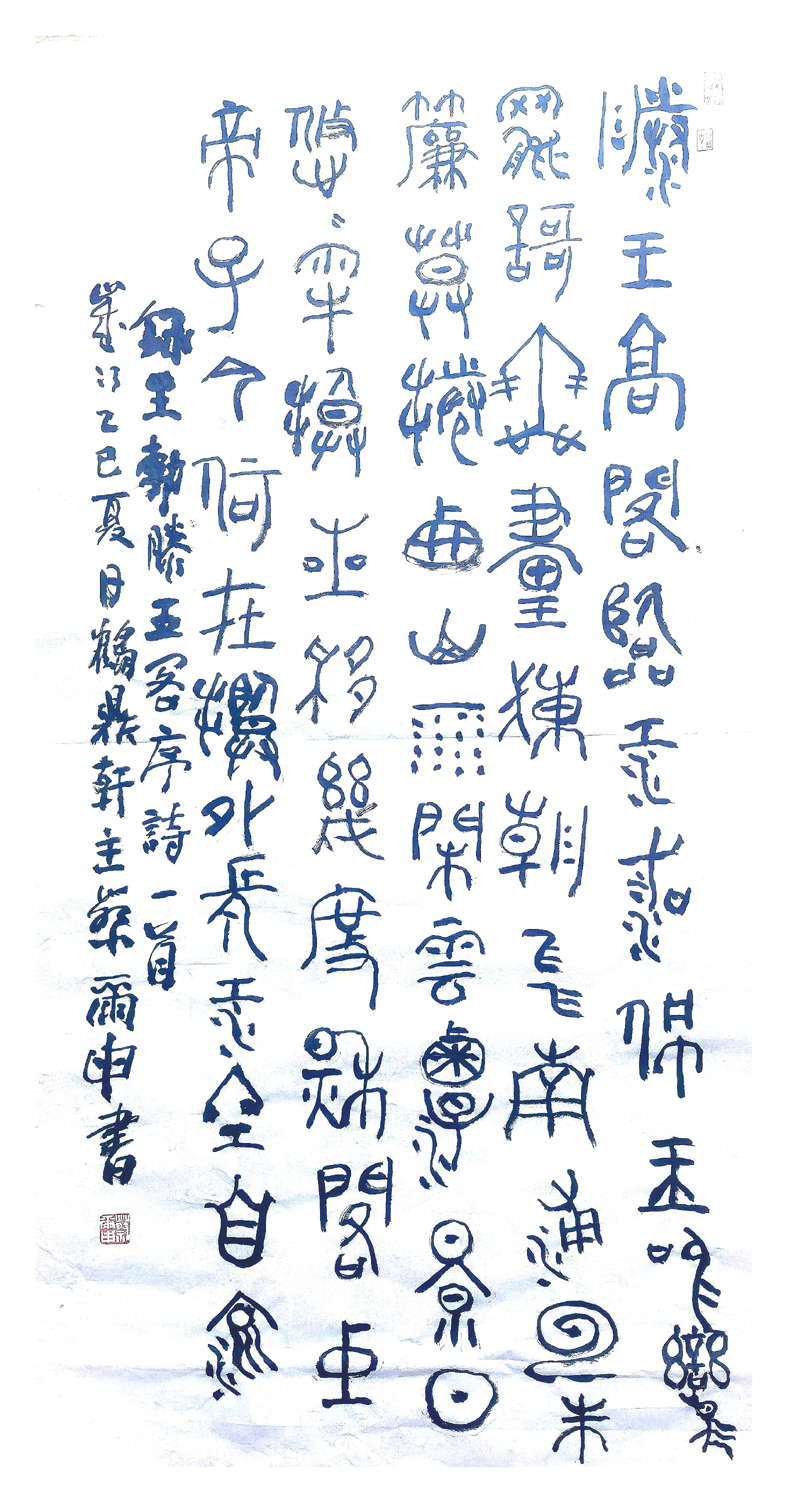 滕王高閣臨江渚佩玉鳴鸞
罷歌舞畫棟朝飛南浦云朱
簾暮捲西山雨閑雲潭影日
悠〻物換星移幾度秋閣中
帝子今何在檻外長江空自流
錄王勃滕王閣序詩一首
歲次乙巳夏日鶴鼎軒主蔡爾申書